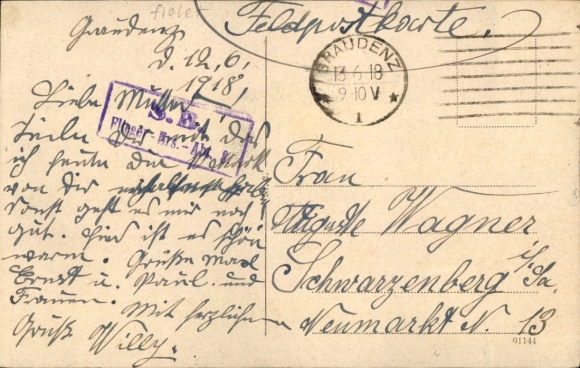 Feldpostkarte.
Graudenz
d. 12, 6,
1918,
Liebe Mutter!
Teile dir mit das
ich heute das
von dir erhalten habe
sonst geht es mir noch
gut. Hier ist es schön
warm. Grüße Max
Ernst u. Paul und
Frauen.
Mit herzlichen
Gruß Willy.
S. B.
Flieger-Ers.-Abt.
GRAUDENZ
13.6.18
9-10 V
1
Frau
Auguste Wagner
Schwarzenberg i/Sa.
Neumarkt N. 13
91144